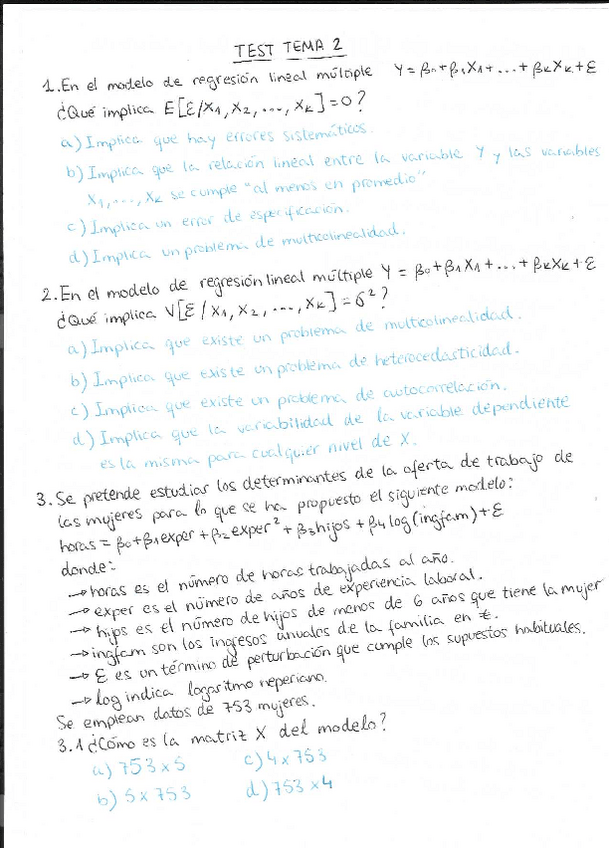 TEST TEMA 2
1. En el modelo de regresión lineal múltiple Y = β0+β1X1+...+βKXK+ε
¿Qué implica E[ε/X1, X2, ..., XK]=0?
a) Implica que hay errores sistemáticos.
b) Implica que la relación lineal entre la variable Y y las variables
X1,..., XK se cumple "al menos en promedio"
c) Implica un error de especificación.
d) Implica un problema de multicolinealidad.
2. En el modelo de regresión lineal múltiple Y = β0+β1X1+...+βKXK+ε
¿Qué implica V[ε/X1, X2, ..., XK]=σ²?
a) Implica que existe un problema de multicolinealidad.
b) Implica que existe un problema de heterocedasticidad.
c) Implica que existe un problema de autocorrelación.
d) Implica que la variabilidad de la variable dependiente
es la misma para cualquier nivel de X.
3. Se pretende estudiar los determinantes de la oferta de trabajo de
las mujeres para lo que se ha propuesto el siguiente modelo:
horas = β0+β1exper+β2exper²+β3hijos+β4log(ingfam)+ε
donde:
→ horas es el número de horas trabajadas al año.
→ exper es el número de años de experiencia laboral.
→ hijos es el número de hijos de menos de 6 años que tiene la mujer
→ ingfam son los ingresos anuales de la familia en €.
→ ε es un término de perturbación que cumple los supuestos habituales.
→ log indica logaritmo neperiano.
Se emplean datos de 753 mujeres.
3.1 ¿Cómo es la matriz X del modelo?
a) 753 x 5 c) 4 x 753
b) 5 x 753 d) 753 x 4